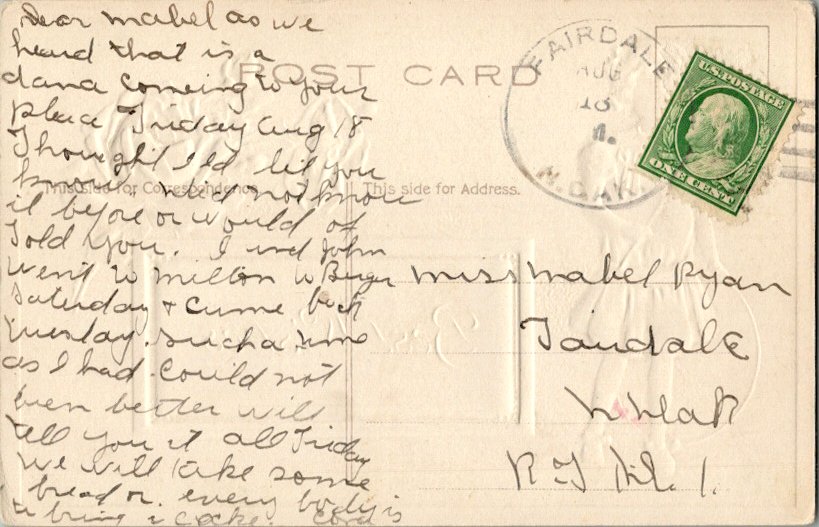 Dear Mabel as we
heard that is a
dana comeing to your
place Friday Aug 18
Thought I ld let you
know did not know
it before or would of
Told you. I and John
went to Milton to Burgr
Saturday & cume back
Tuesday. such a time
as I had Could not
been better will
tell you it all Friday
we will take some
bread or every body is
to bring a cacke.
POST CARD
This side for Correspondence.
This side for Address.
FAIRDALE
AUG
16
N. DAK.
U.S. POSTAGE
ONE CENT
Miss Mabel Ryan
Fairdale
N Dak
R F D. 1.